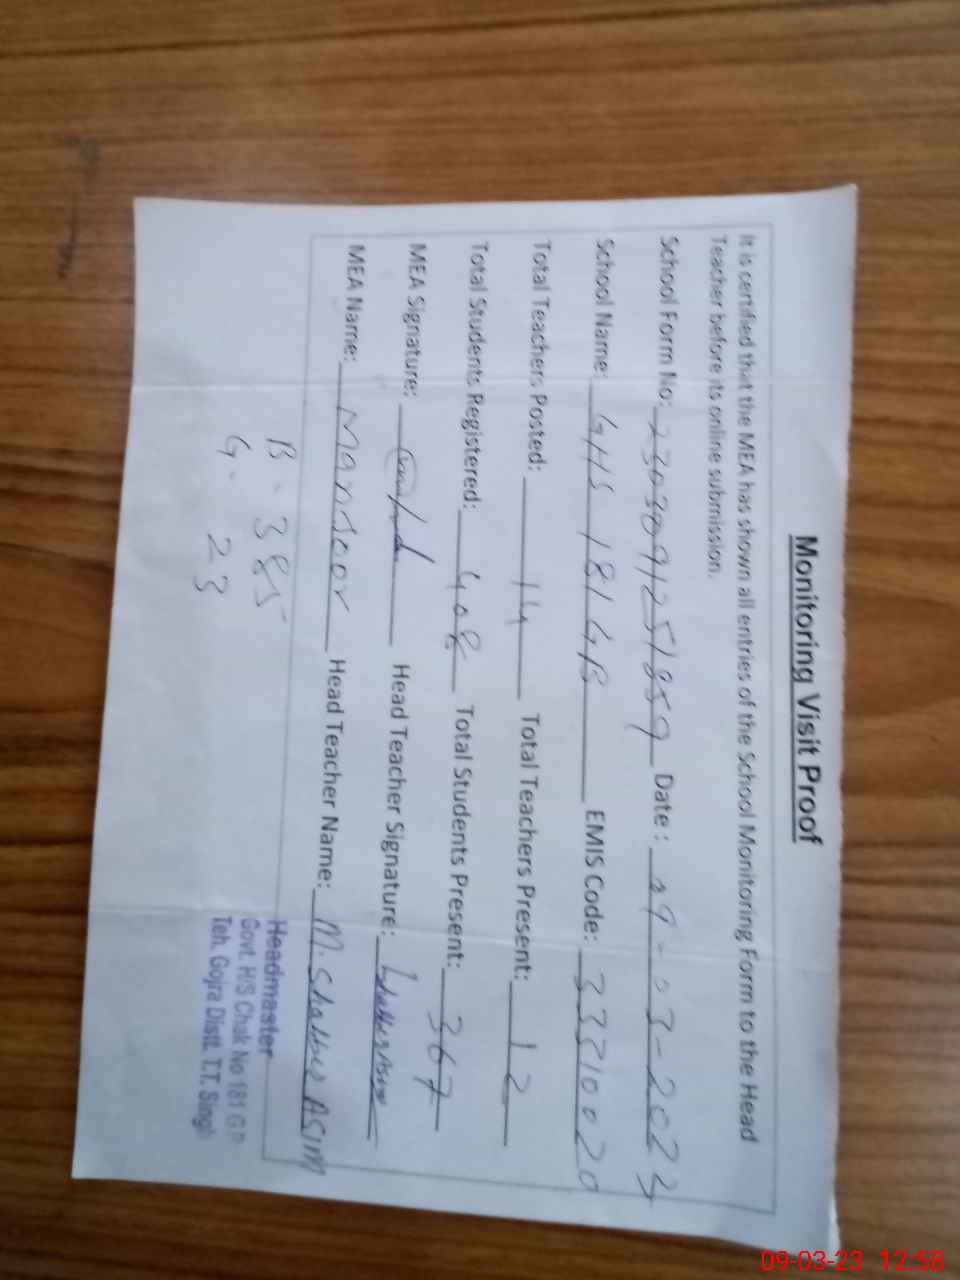 Monitoring Visit Proof
It is certified that the MEA has shown all entries of the School Monitoring Form to the Head
Teacher before its online submission.
School Form No: 2303091251859 Date: 09-03-2023
School Name: GHS 181 GB EMIS Code: 33310020
Total Teachers Posted: 14 Total Teachers Present: 12
Total Students Registered: 408 Total Students Present: 367
MEA Signature: Head Teacher Signature:
MEA Name: Mansoor Head Teacher Name: M. Shabbir ASIM
B. 385
G. 23
Headmaster
Govt. H/S Chak No 181 G B
Teh. Gojra Distt. T.T. Singh
09-03-23 12:58